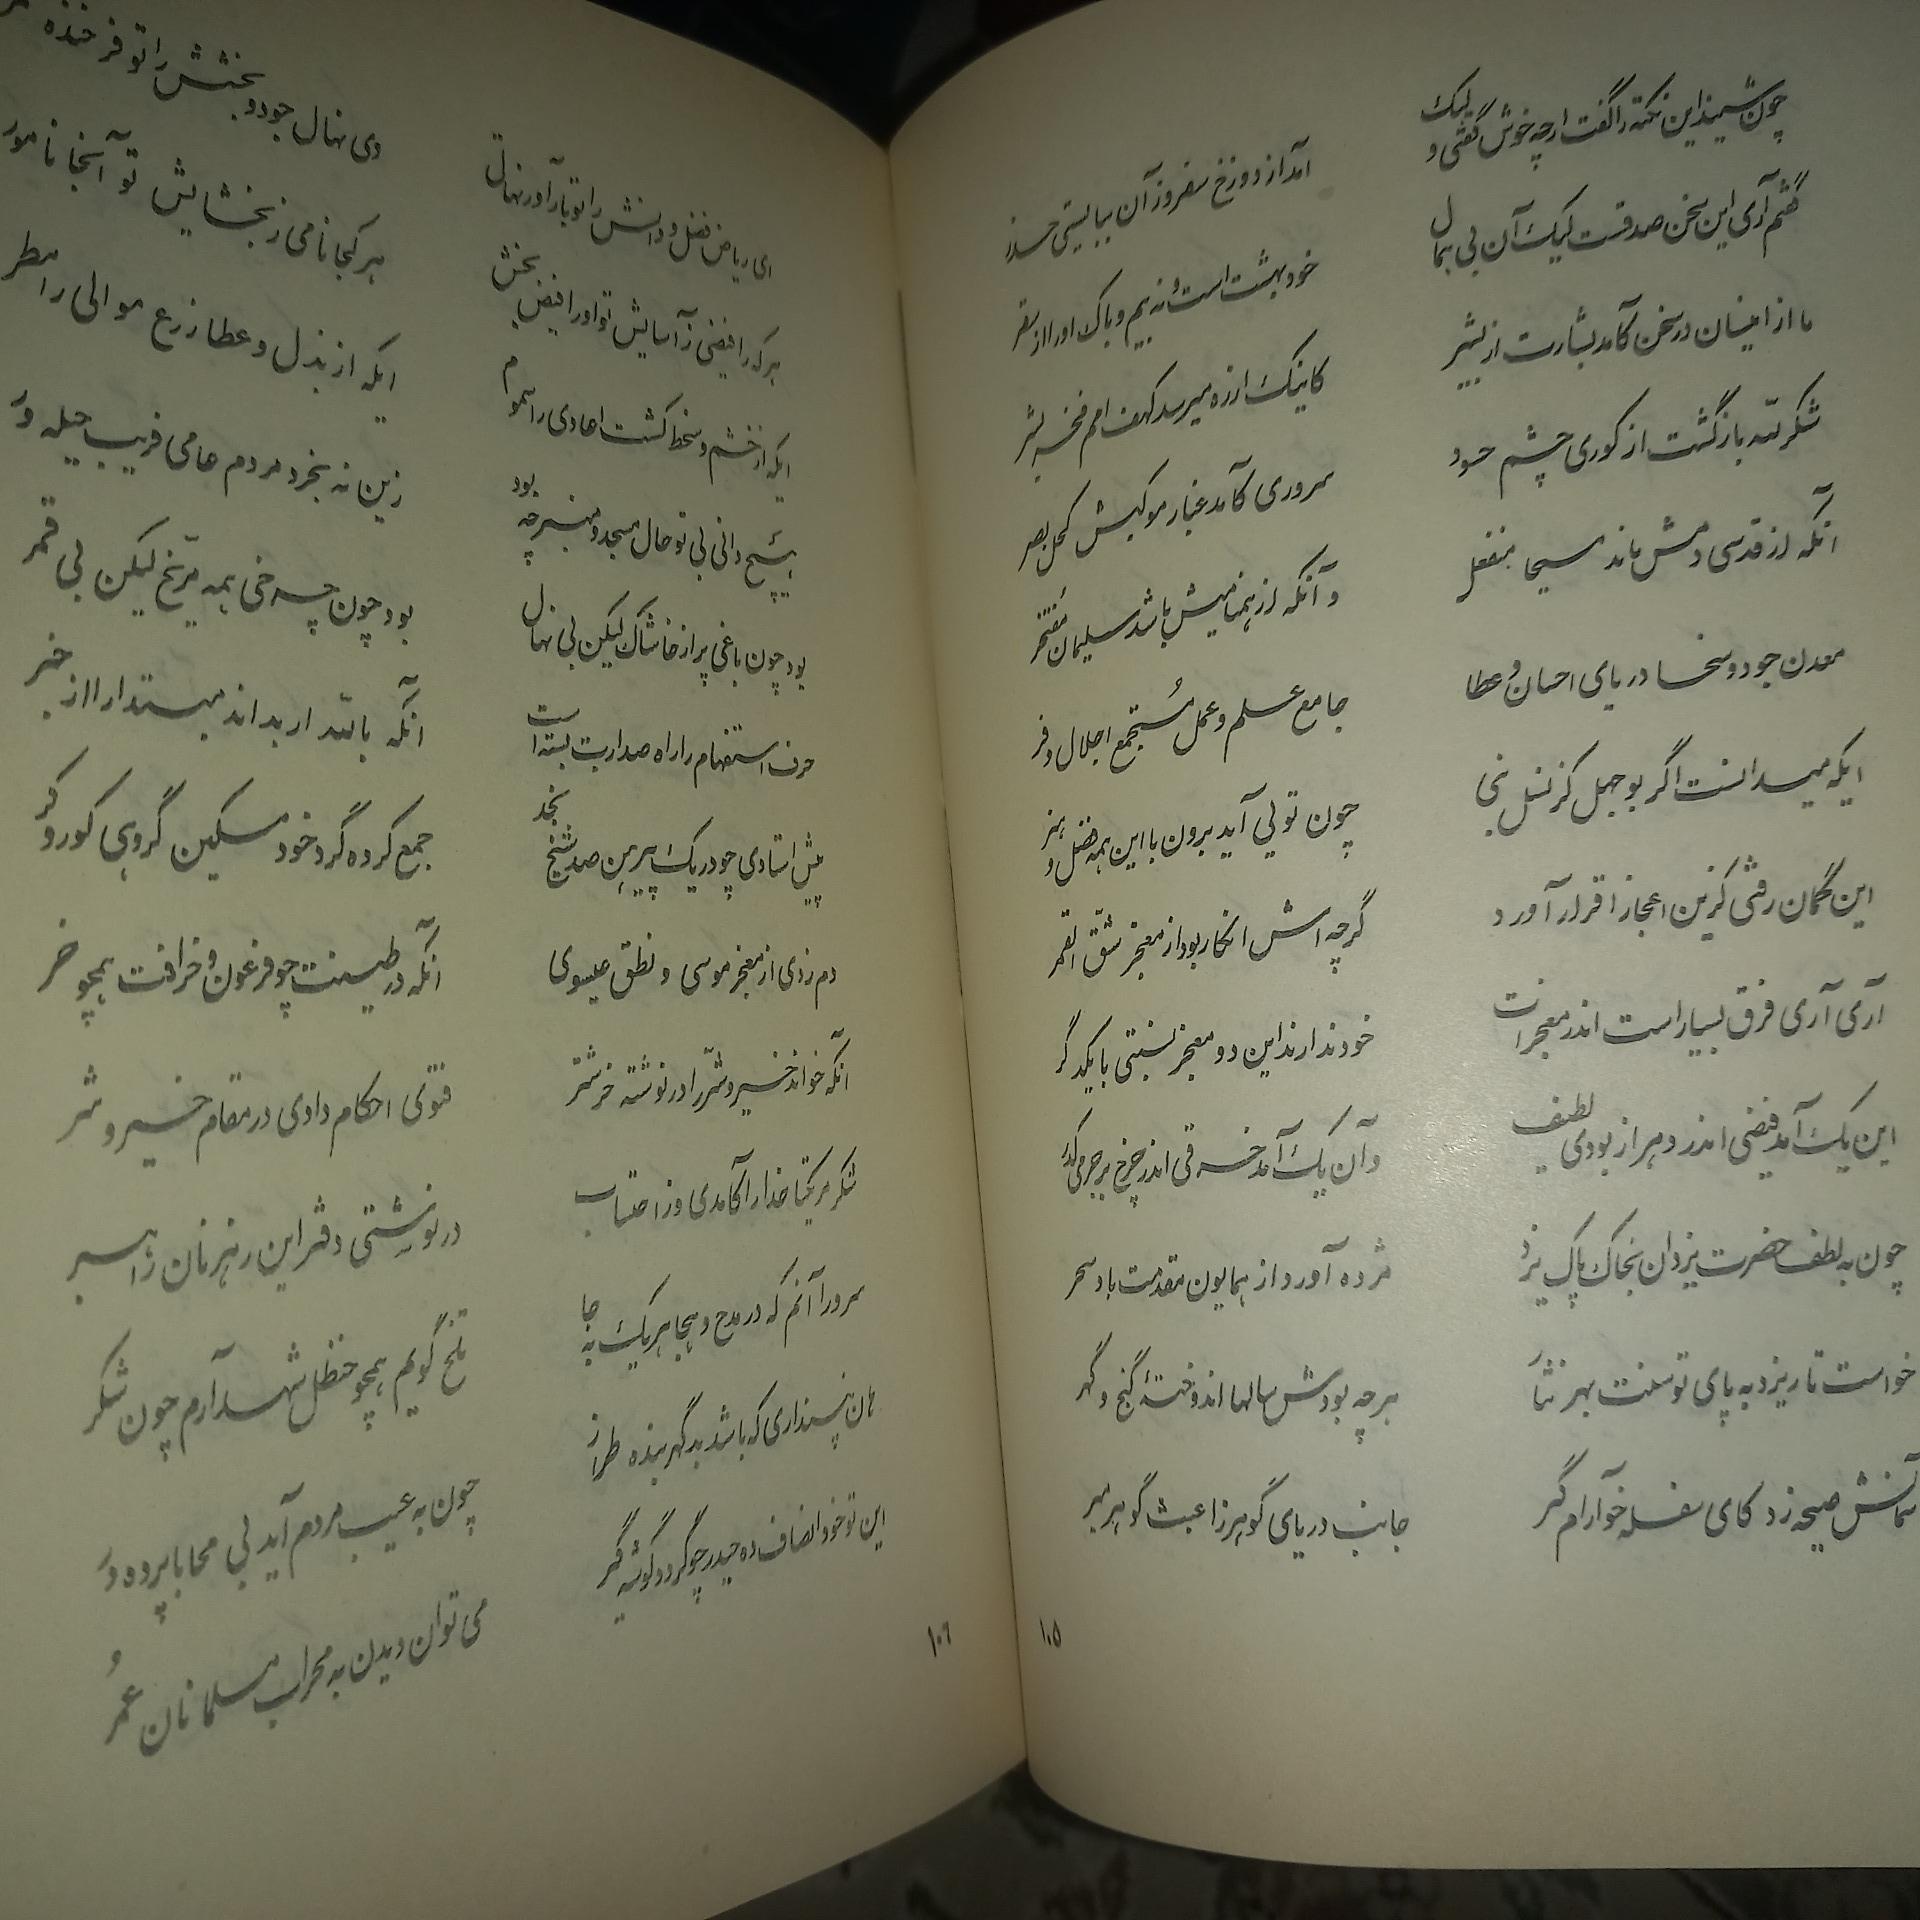 چون شنید این نکته را گفت ارچه خوش گفتی و لیک
آمد از دوزخ سفر وز آن ببایستی حذر
گفتم آری این سخن صدقست لیک آن بی همال
خود بهشت است و نه بیم و باک او را از سقر
ما از اینسان در سخن کآمد بشارت از بشیر
کاینک از ره میرسد کهف امم فخر بشر
شکر لله بازگشت از کوری چشم حسود
سروری کآمد غبار موکبش کحل بصر
آنکه از قدسی دمش ماند مسیحا منفعل
و آنکه از همنامیش باشد سلیمان مفتخر
معدن جود و سخا دریای احسان و عطا
جامع علم و عمل مُستجمع اجلال و فر
ایکه میدانست اگر بوجهل کز نسل نبی
چون تویی آید برون با این همه فضل و هنر
این گمان رفتی کزین اعجاز اقرار آورد
گرچه اش انکار بود از معجز شقّ القمر
آری آری فرق بسیار است اندر معجزات
خود ندارند این دو معجز نسبتی با یکدگر
این یک آمد فیضی اندر دهر از بودی لطیف
و آن یک آمد خرقی اندر چرخ بر جرمی کدر
چون به لطف حضرت یزدان بخاک پاک یزد
مژده آورد از همایون مقدمت باد سحر
خواست تا ریزد به پای توسنت بهر نثار
هر چه بودش سالها اندوختهٔ گنج و گهر
آسمانش صیحه زد کای سفله خو آرام گیر
جانب دریای گوهرزا عبث گوهر مبر
۱۰۵
ای ریاض فضل و دانش را تو بارآور نهال
وی نهال جود و بخشش را تو فرخنده
هر که را فیضی ز آسایش تو او را فیض بخش
هر کجا نامی ز بخشایش تو آنجا نامور
ایکه از خشم و سخط کشت اعادی را سموم
ایکه از بذل و عطا زرع موالی را مطر
هیچ دانی بی تو حال مسجد و منبر چه بود
زین نه بخرد مردم عامی فریب حیله ور
بود چون باغی پر از خاشاک لیکن بی نهال
بود چون چرخی همه مرّیخ لیکن بی قمر
حرف استفهام را راه صدارت بسته است
آنکه بالله ار بداند مبتدا را از خبر
پیش استادی چو در یک پیرهن صد شیخ نجد
جمع کرده گرد خود مسکین گروهی کور و کر
دم زدی از معجز موسی و نطق عیسوی
آنکه در طینت چو فرعون و خرافت همچو خر
آنکه خواند خیر و شرّ را در نوشته خر شتر
فتوی احکام دادی در مقام خیر و شر
شکر مر یکتا خدا را کآمدی وز احتساب
در نوشتی دفتر این رهزنان راهبر
سرورا آنم که در مدح و هجا هر یک به جا
تلخ گویم همچو حنظل شهد آرم چون شکر
هان نپنداری که باشد بد گهر بنده طراز
چون به عیب مردم آید بی محابا پرده در
این تو خود انصاف ده حیدر چو گردد گوشه گیر
می توان دیدن به محراب مسلمانان عُمَر
۱۰۶